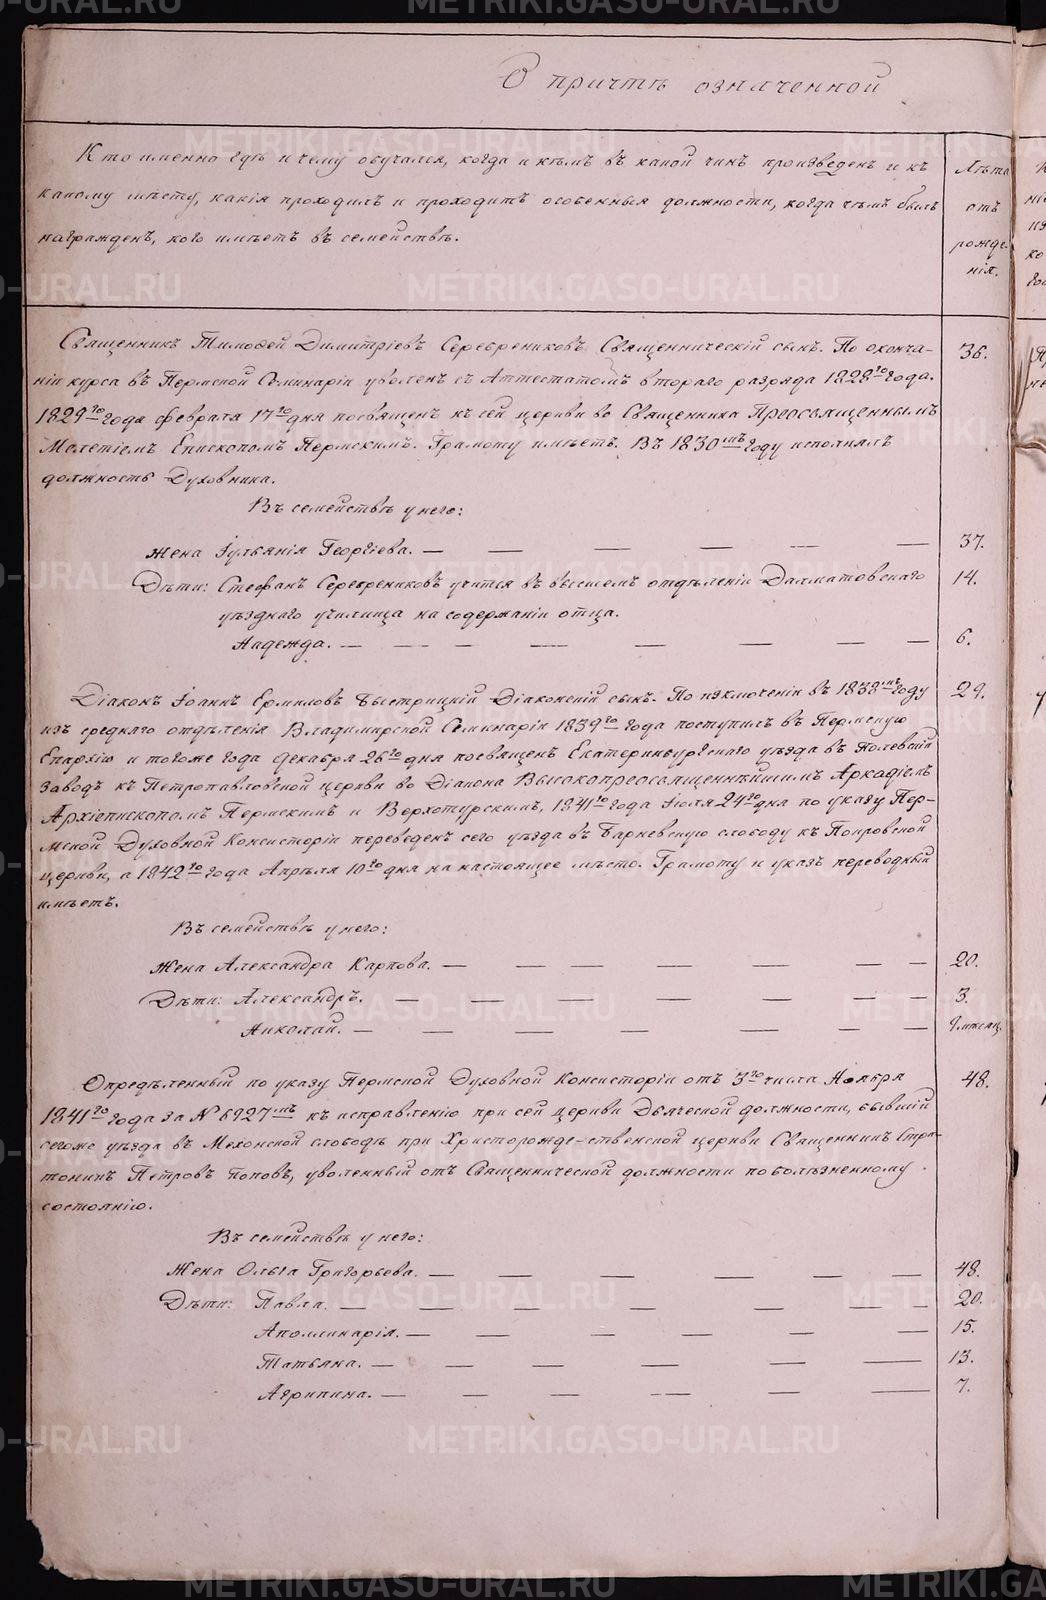 О причтѣ означенной
Кто именно гдѣ и чему обучался, когда и кѣмъ въ какой чинъ произведенъ и къ
какому мѣсту, какія проходилъ и проходитъ особенныя должности, когда чѣмъ былъ
награжденъ, кого имѣетъ въ семействѣ.
Лѣта
отъ
рожде-
нія.
Священникъ Тимофей Димитріевъ Серебрениковъ. Священническій сынъ. По оконча- 36.
ніи курса въ Пермской Семинаріи уволенъ съ Аттестатомъ втораго разряда 1828го года.
1829го года февраля 17го дня посвященъ къ сей церкви во Священника Преосвященнымъ
Мелетіемъ Епископомъ Пермскимъ. Грамоту имѣетъ. Въ 1830мъ году исполнялъ
должность Духовника.
Въ семействѣ у него:
Жена Іульянія Георгіева. — 37.
Дѣти: Стефанъ Серебрениковъ учится въ высшемъ отдѣленіи Далматовскаго 14.
уѣзднаго училища на содержаніи отца.
Надежда. — 6.
Діаконъ Іоаннъ Ермиловъ Быстрицкій Діаконскій сынъ. По изключеніи въ 1838мъ году 29.
изъ средняго отдѣленія Владимирской Семинаріи 1839го года поступилъ въ Пермскую
Епархію и тогоже года Декабря 26го дня посвященъ Екатеринбургскаго уѣзда въ Полевскій
Заводъ къ Петропавловской церкви во Діакона Высокопреосвященнѣйшимъ Аркадіемъ
Архіепископомъ Пермскимъ и Верхотурскимъ, 1841го года Іюля 24го дня по указу Пер-
мской Духовной Консисторіи переведенъ сего уѣзда въ Барневскую слободу къ Покровской
церкви, а 1842го года Апрѣля 10го дня на настоящее мѣсто. Грамоту и указъ переводный
имѣетъ.
Въ семействѣ у него:
Жена Александра Карпова. — 20.
Дѣти: Александръ. — 3.
Николай. — мѣсяц.
Опредѣленный по указу Пермской Духовной Консисторіи отъ 3го числа Ноября 48.
1841го года за № 6927мъ къ исправленію при сей церкви Дьяческой должности, бывшій
сегоже уѣзда въ Мехонской слободѣ при Христорождественской церкви Священникъ Стра-
тоникъ Петровъ Поповъ, уволенный отъ Священнической должности по болѣзненному
состоянію.
Въ семействѣ у него:
Жена Ольга Григорьева. — 48.
Дѣти: Павла. — 20.
Аполлинарія. — 15.
Татьяна. — 13.
Агрипина. — 7.
METRIKI.GASO-URAL.RU